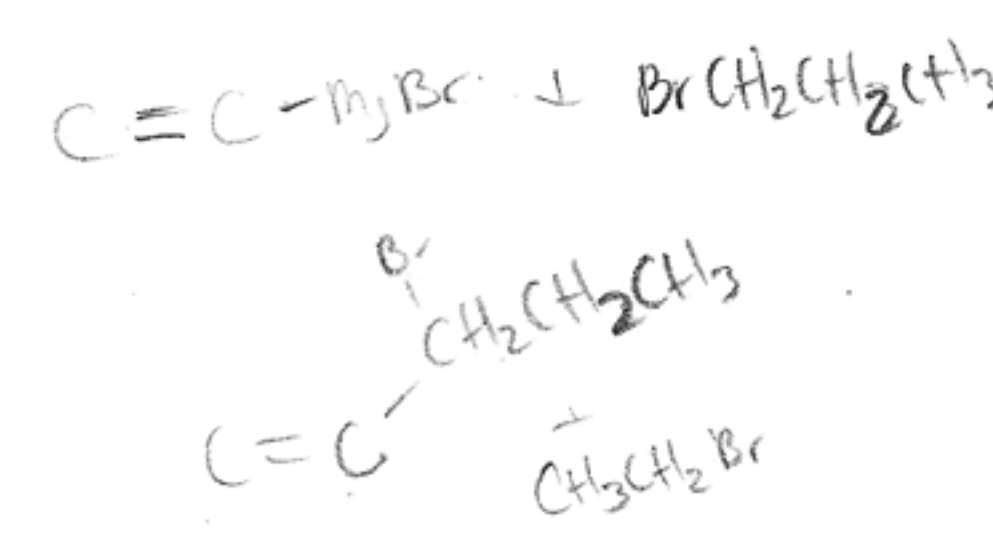 C≡C-MgBr + BrCH₂CH₂CH₃
Br
CH₂CH₂CH₃
C=C
+
CH₃CH₂Br